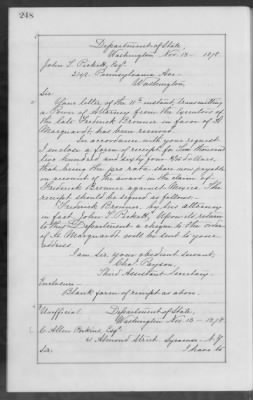 248
Department of State,
Washington, Nov. 13 — 1878.
John T. Pickett, Esqr.
Pennsylvania Ave.
Washington.
Sir:
Your letter of the 11th instant, transmitting
a Power of Attorney from the Executors of
the late Frederick Bronner in favor of H.
Marquardt, has been received.
In accordance with your request
I enclose a form of receipt for Two thousand
two hundred and sixty four dollars,
that being the pro rata share now payable
on account of the award in the claim of
Frederick Bronner against Mexico. The
receipt should be signed as follows:
Frederick Bronner, by his attorney
in fact, John T. Pickett. Upon its return
to this Department a cheque to the order
of H. Marquardt will be sent to your
address.
I am, Sir, your obedient servant,
Chas. Payson,
Third Assistant Secretary.
Enclosure—
Blank form of receipt as above.
Unofficial. Department of State,
Washington, Nov. 13 — 1878.
C. Allen Perkins, Esqr.
Almond Street, Syracuse, N.Y.
Sir: I have to